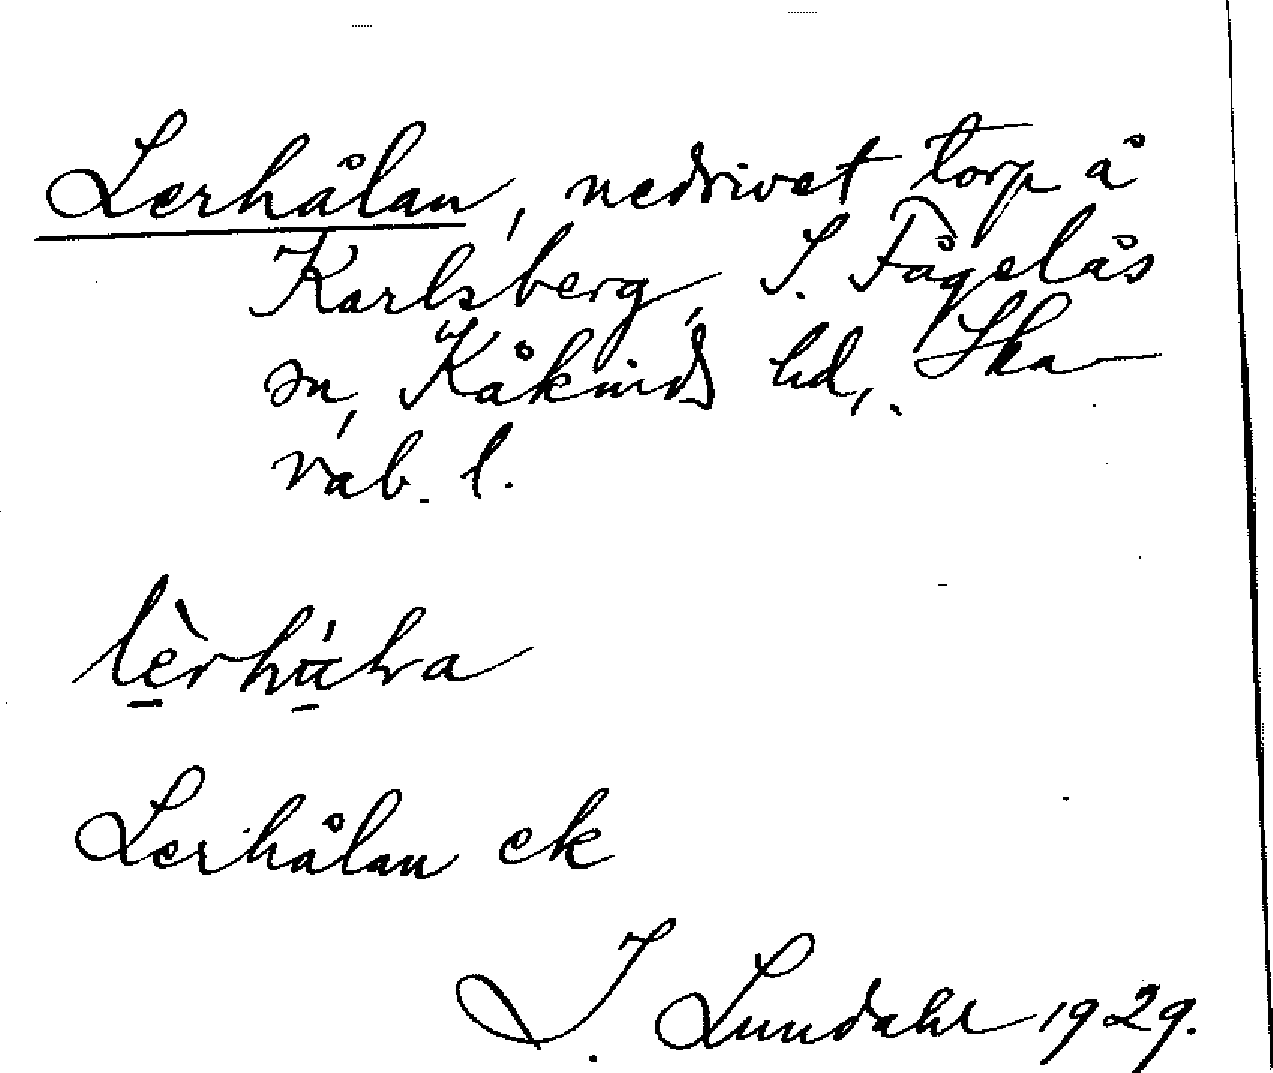 Lerhålan, nedrivet torp å
Karlsberg, S. Fågelås
sn, Kåkinds hd, Ska-
rab. l.
Lerhålan ek
J. Lundahl 1929.